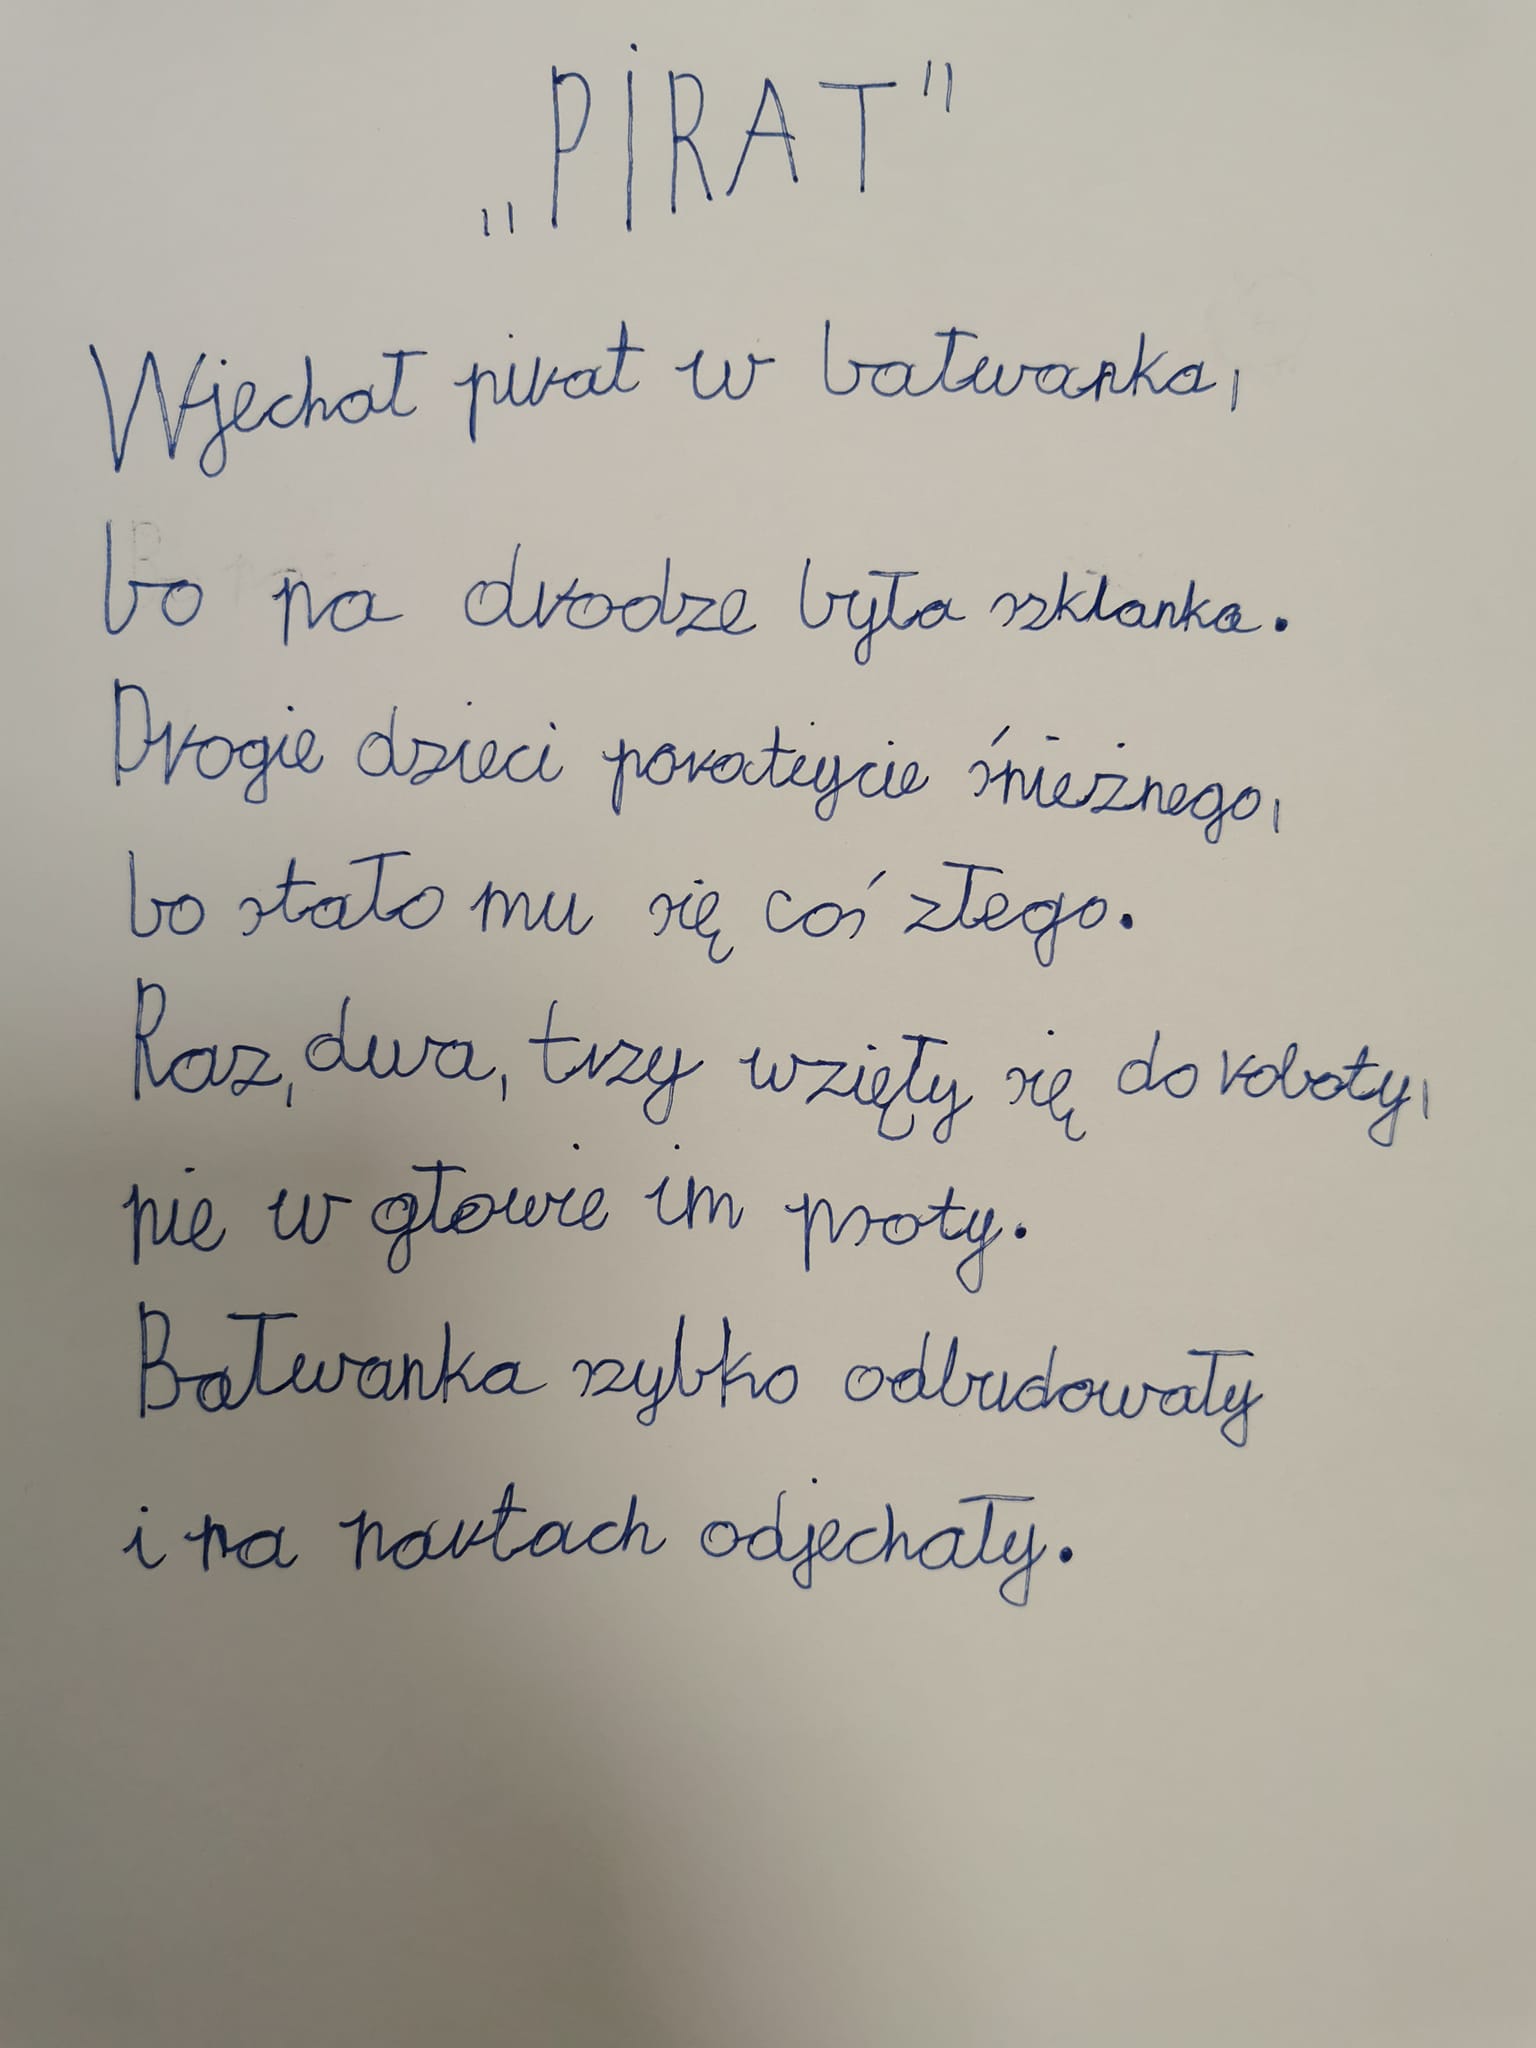 „PiRAT"
Wjechał pirat w bałwanka,
bo na drodze była szklanka.
Drogie dzieci poratujcie śnieżnego,
bo stało mu się coś złego.
Raz, dwa, trzy wzięły się do roboty,
nie w głowie im psoty.
Bałwanka szybko odbudowały
i na nartach odjechały.